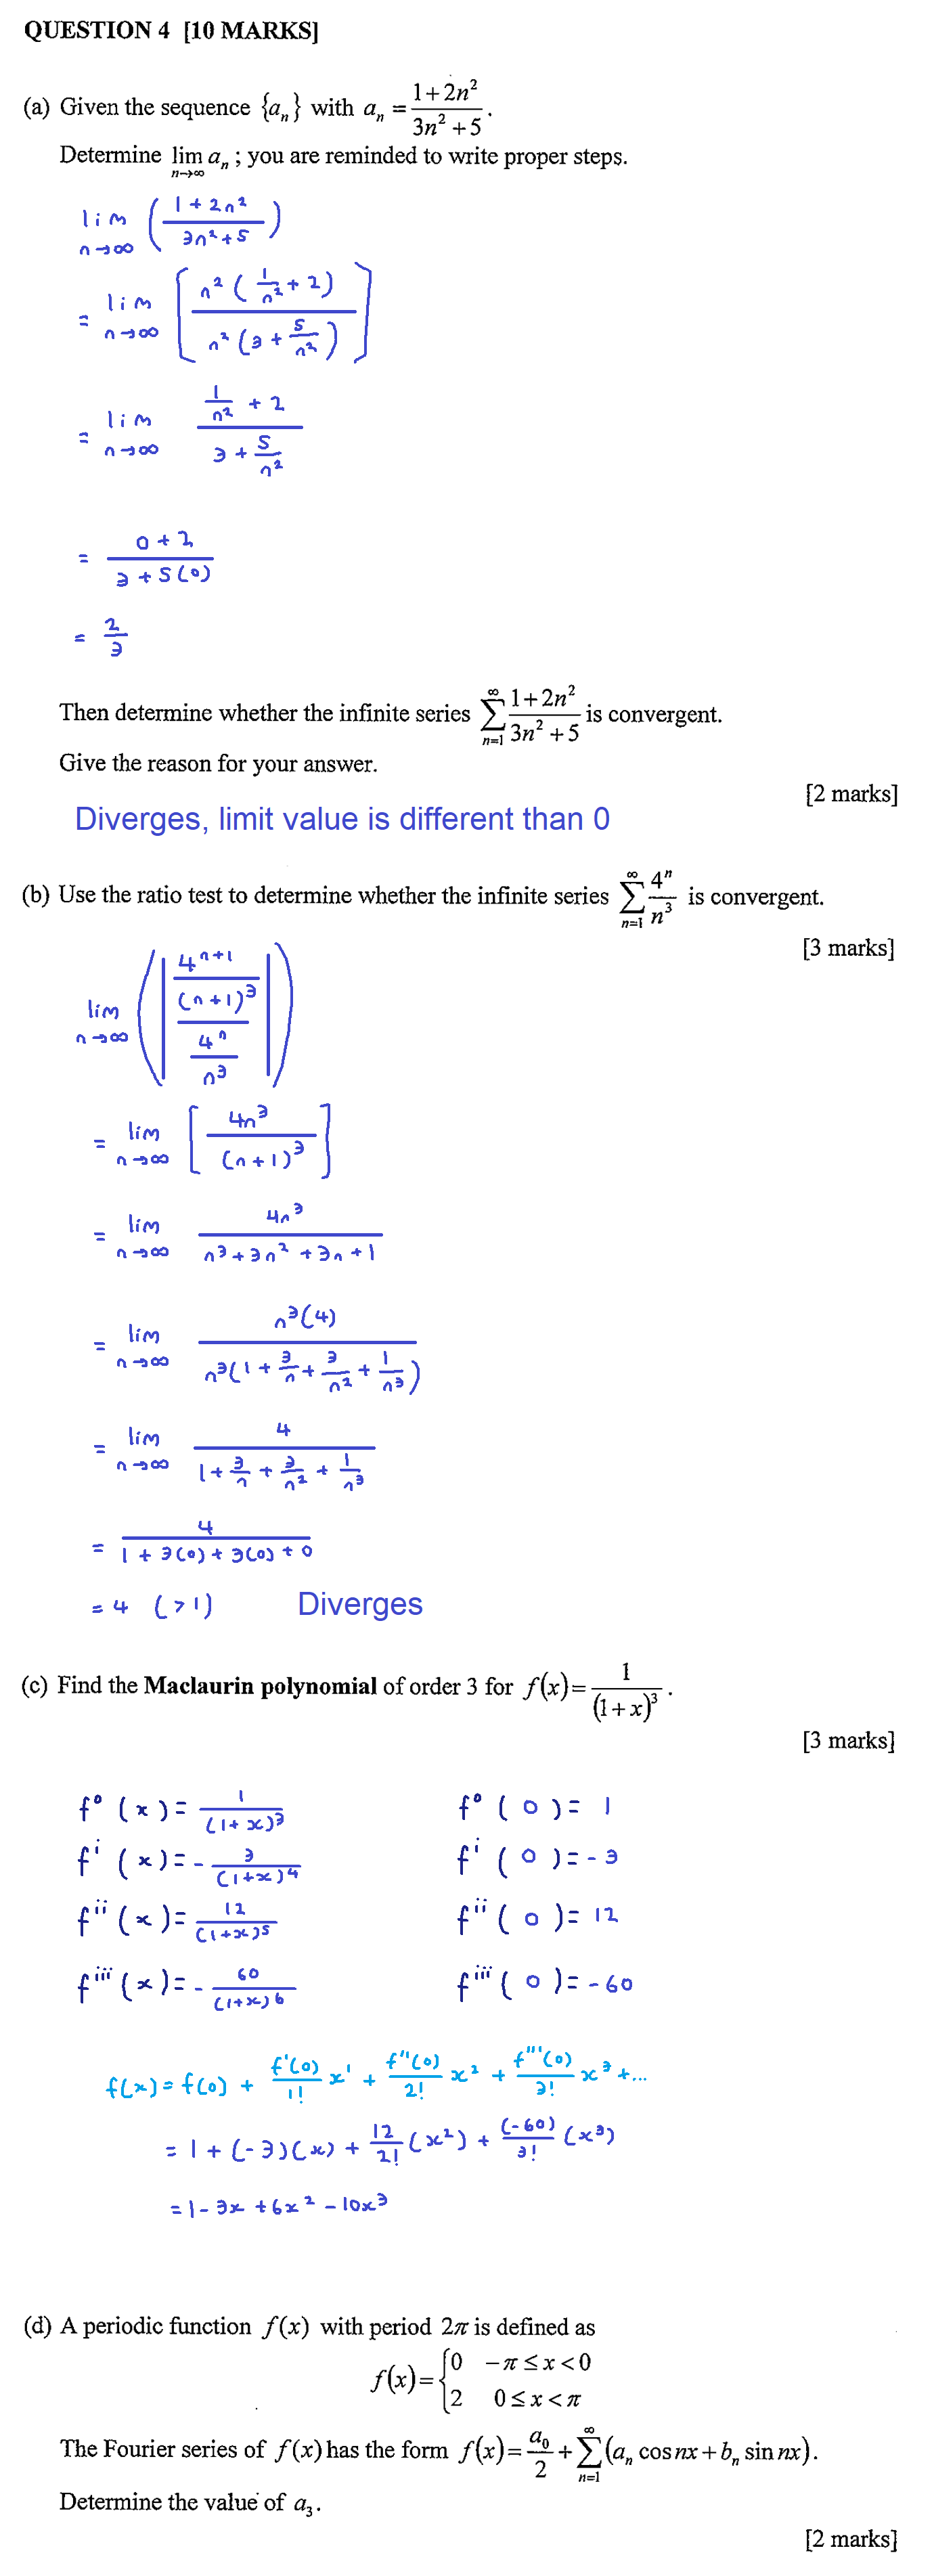 QUESTION 4 [10 MARKS]
(a) Given the sequence {aₙ} with aₙ = (1+2n²)/(3n²+5).
Determine lim n→∞ aₙ ; you are reminded to write proper steps.
lim n→∞ ((1+2n²)/(3n²+5))
= lim n→∞ [n²(1/n²+2)/(n²(3+5/n²))]
= lim n→∞ (1/n²+2)/(3+5/n²)
= (0+2)/(3+5(0))
= 2/3
Then determine whether the infinite series ∑ n=1 ∞ (1+2n²)/(3n²+5) is convergent.
Give the reason for your answer.
[2 marks]
Diverges, limit value is different than 0
(b) Use the ratio test to determine whether the infinite series ∑ n=1 ∞ 4ⁿ/n³ is convergent.
[3 marks]
lim n→∞ (|(4ⁿ⁺¹/(n+1)³)/(4ⁿ/n³)|)
= lim n→∞ [4n³/(n+1)³]
= lim n→∞ 4n³/(n³+3n²+3n+1)
= lim n→∞ n³(4)/(n³(1+3/n+3/n²+1/n³))
= lim n→∞ 4/(1+3/n+3/n²+1/n³)
= 4/(1+3(0)+3(0)+0)
= 4 (>1) Diverges
(c) Find the Maclaurin polynomial of order 3 for f(x)=1/(1+x)³.
[3 marks]
f⁰(x)= 1/(1+x)³ f⁰(0)= 1
fⁱ(x)= -3/(1+x)⁴ fⁱ(0)= -3
fⁱⁱ(x)= 12/(1+x)⁵ fⁱⁱ(0)= 12
fⁱⁱⁱ(x)= -60/(1+x)⁶ fⁱⁱⁱ(0)= -60
f(x)= f(0) + f'(0)/1! x¹ + f''(0)/2! x² + f'''(0)/3! x³ +...
= 1 + (-3)(x) + 12/2! (x²) + (-60)/3! (x³)
= 1 - 3x + 6x² - 10x³
(d) A periodic function f(x) with period 2π is defined as
f(x)={0 -π ≤ x < 0
2 0 ≤ x < π
The Fourier series of f(x) has the form f(x)= a₀/2 + ∑ n=1 ∞ (aₙ cos nx + bₙ sin nx).
Determine the value of a₃.
[2 marks]